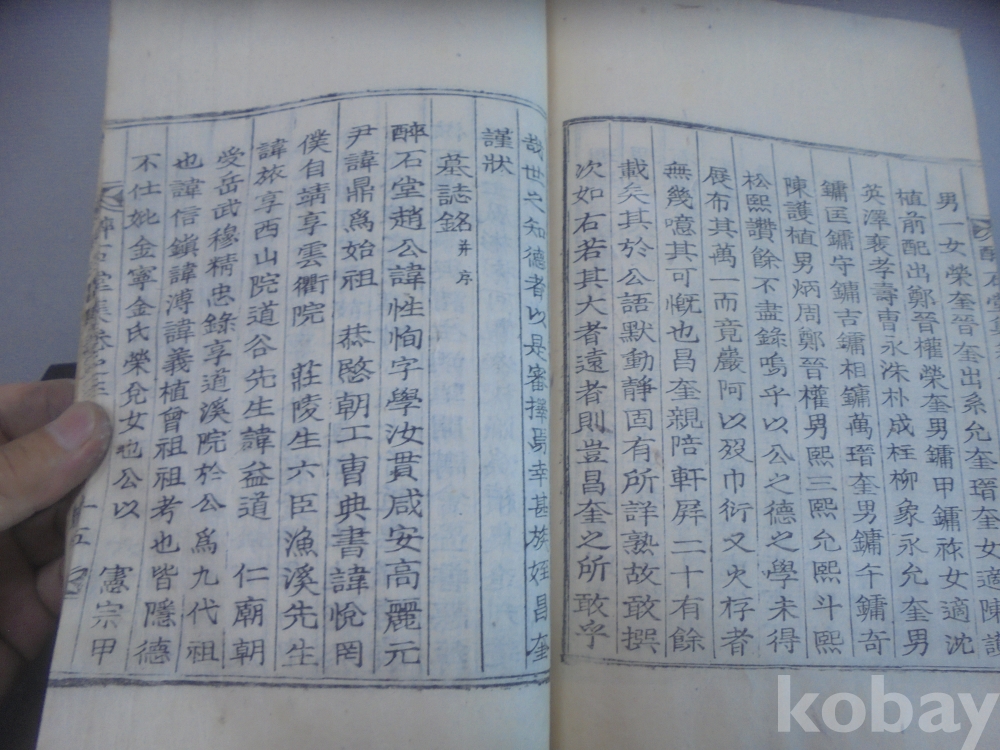 男一女榮奎晉奎出系允奎瑨奎女適陳
植前配出鄭晉權榮奎男鏞甲鏞祚女適沈
英澤裵孝壽曺永洙朴成桎柳象永允奎男
鏞匡鏞守鏞吉鏞相鏞萬瑨奎男鏞午鏞奇
陳護植男炳周鄭晉權男熙三熙允熙斗熙
松熙讚餘不盡錄嗚乎以公之德之學未得
展布其萬一而竟巖阿以歿巾衍又火存者
無幾噫其可慨也昌奎親陪軒屛二十有餘
載矣其於公語默動靜固有所詳熟故敢撰
次如右若其大者遠者則豈昌奎之所敢乎
哉世之知德者以是審擇焉幸甚族姪昌奎
謹狀
墓誌銘幷序
醉石堂趙公諱性恂字學汝貫咸安高麗元
尹諱鼎爲始祖 恭愍朝工曺典書諱悅罔
僕自靖享雲衢院 莊陵生六臣漁溪先生
諱旅享西山院道谷先生諱益道 仁廟朝
受岳武穆精忠錄享道溪院於公爲九代祖
也諱信鎭諱溥諱義植曾祖祖考也皆隱德
不仕妣金寧金氏榮兌女也公以 憲宗甲
醉石堂集卷之三 十五
kobay